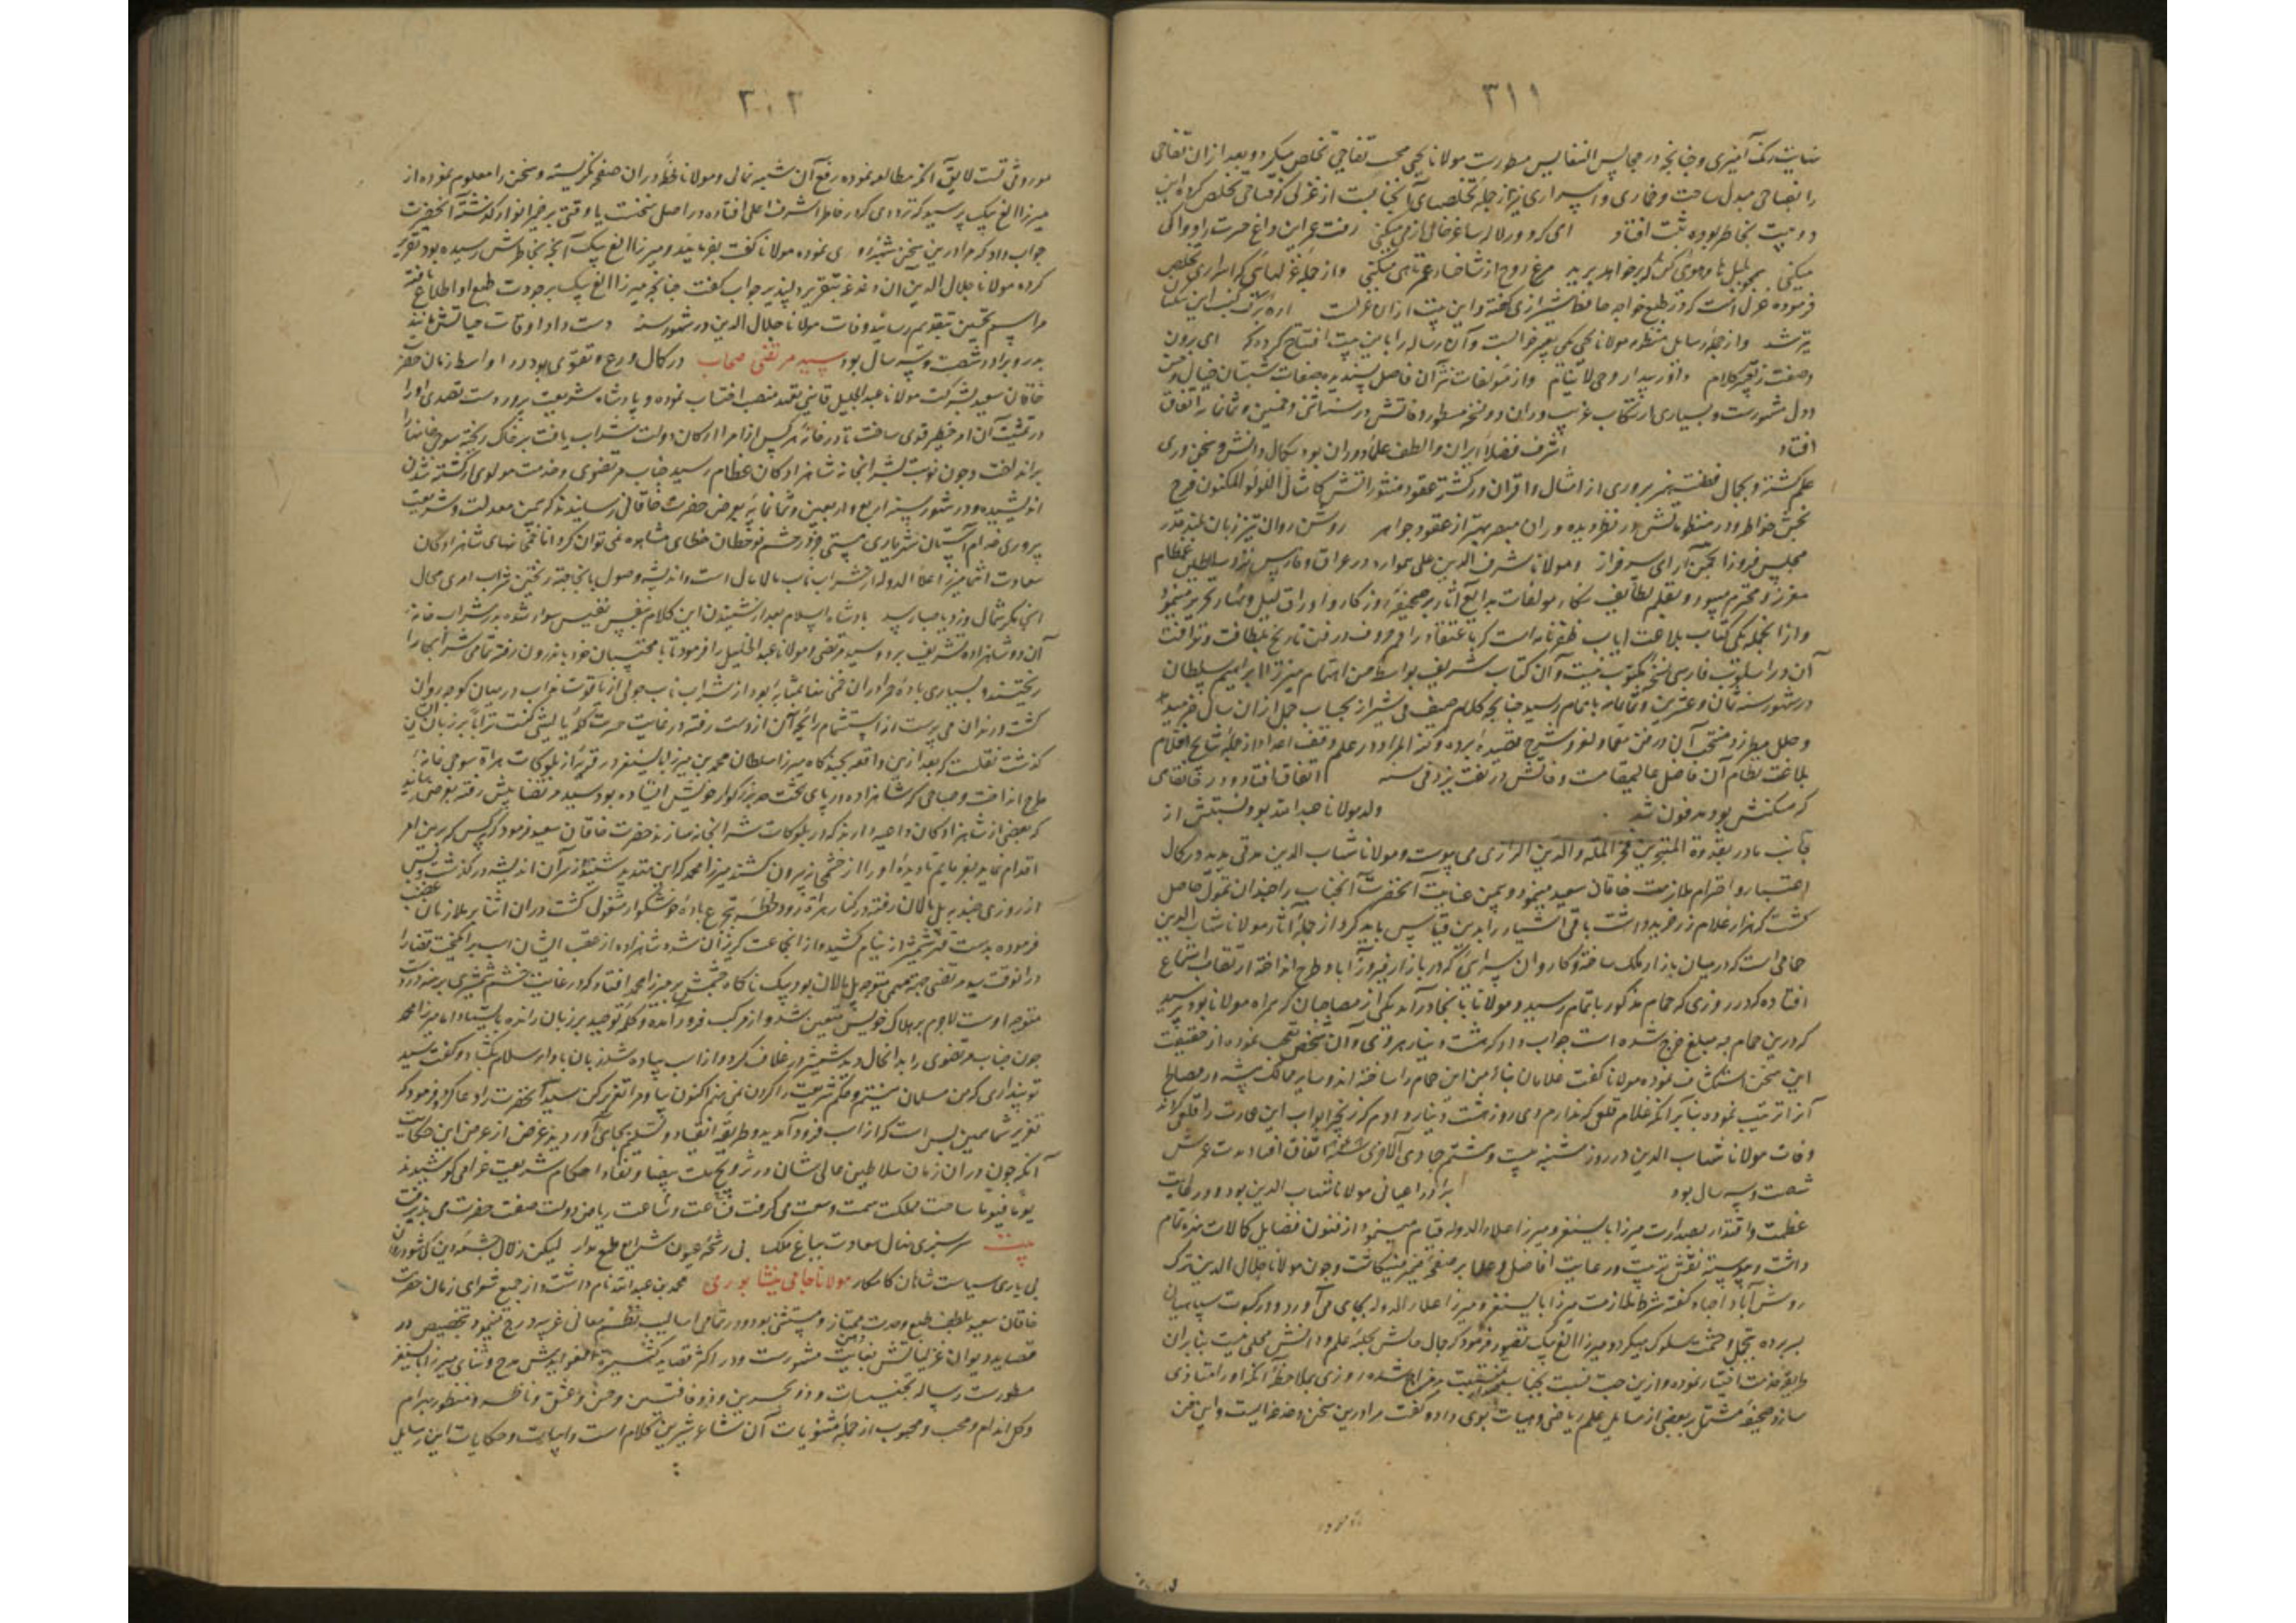 ۳۱۱
بغایت رنک آمیزی وچنانچه در مجالس النفایس مسطورست مولانا یحیی محب تفاحی تخلص میکرد و بعد ازان تفاحی
را بفتاحی مبدل ساخت و خماری و اسراری نیز از جمله تخلصهای آنجنابست از غزلی که فتاحی تخلص کرده این
دو بیت بخاطر بوده ثبت افتاد ای که دور لاله ساغر خالی از می میکنی رفت عمر این داغ حسرت را دوا کی
میکنی بلبل تا وموئی کن که خواهد پرید مرغ روح از شاخسار عمر تا هی میکنی واز جمله غزلهائی که اسراری تخلص
فرموده غزلی است که در تتبع خواجه حافظ شیرازی گفته و این بیت ازان غزلست
تر شد واز جمله رسایل منظوم مولانا یحیی یکی تعبیر خوابست وآن رساله را باین بیت افتتاح کرده که ای برون
وصفت ز تعبیر کلام واز مولفات نثر آن فاضل پسندیده صفات شبستان خیال وحسن
ودل مشهورست وبسیاری از نکات غریب دران دو نسخه مسطور وفاتش در سنه اثنی وخمسین وثمانمائه اتفاق
افتاد اشرف فضلاء ایران والطف علماء دوران بود بکمال دانش وسخن وری
علم کشته وبجمال فطنت وهنر پروری از امثال واقران درکذشته عقود منثوراتش کامثال اللؤلؤ المکنون فرح
بخش خواطر ودرر منظوماتش در نظر دیده وران مبصر بهتر از عقود جواهر روشن روان تیز زبان بلند قدر
مجلس فروز انجمن آرای سرفراز ومولانا شرف الدین علی همواره در عراق وفارس نزد سلاطین عظام
معزز ومحترم میبود وبقلم لطایف نکار مولفات بدایع آثار بر صحیفه روزکار واوراق لیل ونهار تحریر مینمود
واز انجمله یکی کتاب بلاغت ایاب ظفرنامه است که باعتقاد راقم حروف در فن تاریخ بلطافت ونزاکت
آن در اسلوب فارسی نسخه مکتوب نیست وآن کتاب شریف بواسطه حسن اهتمام میرزا ابراهیم سلطان
در شهور سنه ثمان وعشرین وثمانمائه باتمام رسید چنانچه کلام صنف فی شیراز بحساب جمل ازان سال خبر میدهد
وحلل مطرز ومنتخب آن در فن معما ولغز وشرح قصیده برده وکنه المراد در علم وفق اعداد از جمله نتایج اقلام
بلاغت نظام آن فاضل عالیمقامست وفاتش در تفت یزد فی سنه اتفاق افتاد ودر خانقاهی
که مسکنش بود مدفون شد ولد مولانا عبدالله بود ونسبتش از
جانب مادر بقدوة المتبحرین فخر الملة والدین الرازی می پیوست ومولانا شهاب الدین مدتی مدید در کمال
اعتبار واحترام ملازمت خاقان سعید مینمود وبیمن عنایت آنحضرت آنجناب را چندان تمول حاصل
گشت که هزار غلام زر خرید داشت باقی اشیاء را بدین قیاس باید کرد واز جمله آثار مولانا شهاب الدین
حمامی است که در میان بازار ملک ساخته وکاروان سرائی که در بازار فیروزآباد طرح انداخته از ثقات استماع
افتاده که در روزی که حمام مذکور باتمام رسید ومولانا بانجا درآمد یکی از مصاحبان که همراه مولانا بود پرسید
که درین حمام چه مبلغ خرج شده است جواب داد که هشت دینار هروی وآن شخص تعجب نموده از حقیقت
این سخن استکشاف نموده مولانا گفت غلامان بناء من این حمام را ساخته اند وسایر ممالیک پیشه ور مصالح
آنرا ترتیب نموده بنابر آنکه غلام قفل گر ندارم دی روز هشت دینار دادم که زنجیر ابواب این عمارت را قفل کرانه
وفات مولانا شهاب الدین در روز شنبه بیست وهشتم جمادی الاخری سنه اتفاق افتاد مدت عمرش
شصت وسه سال بود برادر اعیانی مولانا شهاب الدین بود ودر غایت
عظمت واقتدار بصدارت میرزا بایسنغر ومیرزا علاء الدوله قیام مینمود از فنون فضایل کمالات بهره تمام
داشت وپیوسته نقش تربیت ورعایت افاضل وعلما بر صفحه ضمیر می نکاشت وچون مولانا جلال الدین ترک
روش آباء واجداد گفته شرط ملازمت میرزا بایسنغر ومیرزا علاء الدوله بجای می آورد ودر کسوت سپاهیان
بسر برده بتجمل وحشمت سلوک میکرد ومیرزا الغ بیک تصور فرمود که جمال حالش بحلیه علم ودانش محلی نیست بنابران
طریقه خدمت اختیار نموده وازین جهت نسبت بجناب منحرف شده روزی بملاحظه آنکه او را متاذی
سازد صحیفه مشتمل بر بعضی از مسایل علم ریاضی وهیات بوی داده گفت مرا درین سخن دغدغه ایست واین فن
۳۰۲
موروثی تست لایق آنکه مطالعه نموده رفع آن شبهه نمائی ومولانا لحظه دران صفحه نکریسته وسخن را معلوم نموده از
میرزا الغ بیک پرسید که ترددی که در خاطر اشرف اعلی افتاده در اصل سخنست یا وقتی بر ضمیر انوار گذشته آنحضرت
جواب داد که مرا درین سخن شبهه روی نموده مولانا گفت بفرمائید ومیرزا الغ بیک آنچه بخاطرش رسیده بود تقریر
کرده مولانا جلال الدین آن دغدغه بتقریر دلپذیر جواب گفت چنانچه میرزا الغ بیک بر جودت طبع او اطلاع یافته
مراسم تحسین بتقدیم رسانید وفات مولانا جلال الدین در شهور سنه دست داد اوقات حیاتش مانند
پدر وبرادر شصت وسه سال بود سید مرتضی صحاب در کمال ورع وتقوی بود در اواسط زمان حضرت
خاقان سعید بشرکت مولانا عبدالجلیل قاینی تعهد منصب احتساب نموده وپادشاه شریعت پرور دست تصدی او را
در تمشیت آن امر خطیر قوی ساخت تا در خانه هر کس از امرا وارکان دولت شراب یافت بر خاک ریخته
برانداخت وچون نوبت بشرابخانه شاهزادکان عظام رسید جناب مرتضوی وخدمت مولوی ازکشته شدن
اندیشیده ودر شهور سنه اربع واربعین وثمانمایه بعرض حضرت خاقانی رسانیدند که بیمن معدلت وشریعت
پروری خدام آستان شهریاری مستی جز در چشم نوخطان خطای مشاهده نمی توان کرد اما خمخانهای شاهزادکان
سعادت انتما میرزا علاء الدوله از شراب ناب مالامال است واندیشه وصول بانجا جهة ریختن شراب امری محال
پادشاه اسلام بعد از شنیدن این کلام بنفس نفیس سوار شده بدر شراب خانه
آن دو شاهزاده تشریف برد وسید مرتضی ومولانا عبدالجلیل را فرمود تا با محتسبان خود باندرون رفته تمامی شرابها را
ریختند وبسیاری باده دران بمثابه بود از شراب ناب جوئی از یاقوت مذاب در میان کوچه روان
گشت ورندان می پرست از استشمام رایحه آن از دست رفته در غایت حسرت کلمه یا لیتنی کنت ترابا بر زبان
گذشت نقلست که بعد ازین واقعه بچندگاه میرزا سلطان محمد بن میرزا بایسنغر در قریه از بلوکات هراة سوجی خانه
طرح انداخت وصباحی که شاهزاده در پای تخت جد بزرگوار خویش ایستاده بود سید مرتضا پیش رفته بعرض رسانید
که بعضی از شاهزادکان داعیه دارند که در بلوکات شرابخانه سازند حضرت خاقان سعید فرمود که هر کس که برین امر
اقدام نماید بفرمایم تا دیده او را از چشم بیرون کشند میرزا محمد که این تهدید شنید از سر آن اندیشه درگذشت وپس
از روزی چند به پل مالان رفته در کنار هراة رود لحظه بتجرع باده خوشگوار مشغول گشت دران اثنا بر ملازمان غضب
فرموده بدست قهر شمشیر از نیام کشید وآن جماعت گریزان شده شاهزاده از عقب ایشان اسب برانگیخت قضا را
درانوقت سید مرتضی جهة مهمی متوجه پل مالان بود بیک ناکاه چشمش بر میرزا محمد افتاد که در غایت خشم شمشیری برهنه در دست
متوجه اوست لاجرم بر هلاک خویش متیقن شد واز مرکب فرود آمده وکلمه توحید بر زبان رانده بایستاد اما میرزا محمد
چون جناب مرتضوی را بدانحال دید شمشیر در غلاف کرد واز اسب پیاده شد وزبان بادای سلام بکشاد وگفت سید
تو پنداری که من مسلمان نیستم وحکم شریعت را کردن نمی نهم اکنون بیا ومرا تعزیر کن سید آنحضرت را دعا کرد وفرمود که
تعزیر شما همین بس است که از اسب فرود آمدید وطریقه انقیاد وتسلیم بجای آوردید غرض از عرض این حکایت
آنکه چون دران زمان سلاطین عالی شان در ترویج ملت بیضا ونفاذ احکام شریعت غرا می کوشیدند
یوما فیوما ساحت مملکت سمت وسعت می گرفت وساعت فساعت ریاض دولت صفت خضرت می پذیرفت
بیت سرسبزی نهال سعادت بباغ ملک بی رشحه عیون شرایع طمع مدار لیکن زلال چشمه دین کی شود روان
بی یاری سیاست شاهان کامکار مولانا جامی نیشابوری محمد بن عبدالله نام داشت واز جمیع شعرای زمان حضرت
خاقان سعید بلطف طبع وحدت ذهن ممتاز ومستثنی بود ودر تمامی اسالیب نظم معانی غریبه درج مینمود بتخصیص در
قصاید ودیوان غزلیاتش بغایت مشهورست ودر اکثر قصاید کثیرة الفوایدش مدح وثنای میرزا بایسنغر
مسطورست رساله تجنیسات وذو بحرین وذو قافیتین وحسن وعشق وناظر ومنظور وبهرام
وگل اندام ومحب ومحبوب از جمله مثنویات آن شاعر شیرین کلام است وابیات وحکایات این رسایل